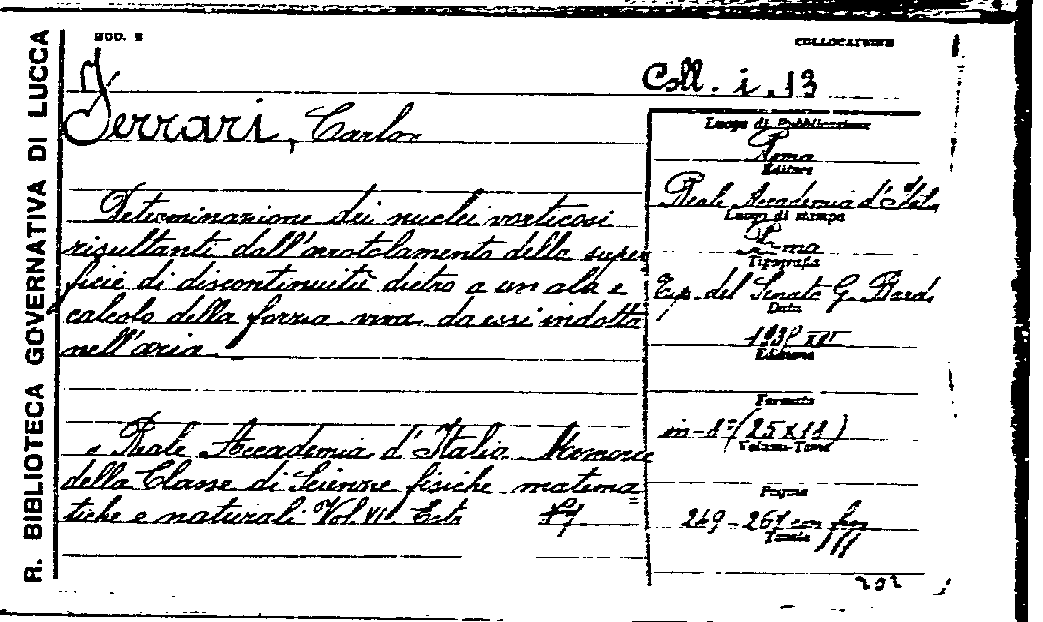 R. BIBLIOTECA GOVERNATIVA DI LUCCA
MOD. E
COLLOCAZIONE
Coll. i. 13
Ferrari, Carlo
Determinazione dei nuclei vorticosi
risultanti dall'arrotolamento della super
ficie di discontinuità dietro a un ala e
calcolo della forza viva da essi indotta
nell'aria.
Reale Accademia d'Italia Memorie
della Classe di Scienze fisiche matema
tiche e naturali Vol. VII. Estr
Luogo di Pubblicazione
Roma
Editore
Reale Accademia d'Ital.
Luogo di stampa
Roma
Tipografia
Tip. del Senato G. Bardi
Data
Edizione
Formato
in-8° (25x18)
Volume-Tomo
Pagine
249-267 con fig
Tavole